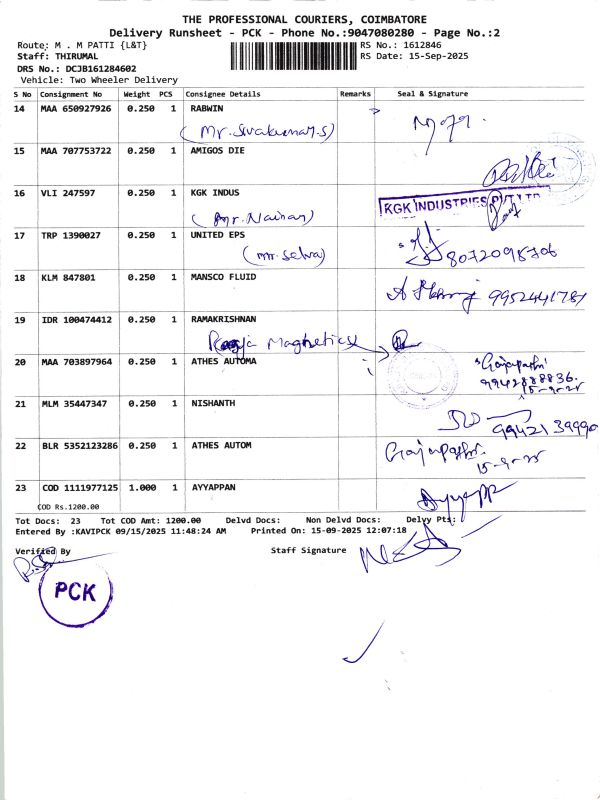 THE PROFESSIONAL COURIERS, COIMBATORE
Delivery Runsheet - PCK - Phone No.:9047080280 - Page No.:2
Route: M . M PATTI {L&T} RS No.: 1612846
Staff: THIRUMAL RS Date: 15-Sep-2025
DRS No.: DCJB161284602
Vehicle: Two Wheeler Delivery
S No Consignment No Weight PCS Consignee Details Remarks Seal & Signature
14 MAA 650927926 0.250 1 RABWIN
(Mr. Sivakumar.S)
15 MAA 707753722 0.250 1 AMIGOS DIE
16 VLI 247597 0.250 1 KGK INDUS KGK INDUSTRIES PVT LTD
(Mr. Nainan)
17 TRP 1390027 0.250 1 UNITED EPS
(Mr. Selva) 8072098706
18 KLM 847801 0.250 1 MANSCO FLUID
9952441781
19 IDR 100474412 0.250 1 RAMAKRISHNAN
Magnetics
20 MAA 703897964 0.250 1 ATHES AUTOMA
9942888836.
15-9-25
21 MLM 35447347 0.250 1 NISHANTH
9942139990
22 BLR 5352123286 0.250 1 ATHES AUTOM
15-9-25
23 COD 1111977125 1.000 1 AYYAPPAN
COD Rs.1200.00
Tot Docs: 23 Tot COD Amt: 1200.00 Delvd Docs: Non Delvd Docs: Delvy Pts:
Entered By :KAVIPCK 09/15/2025 11:48:24 AM Printed On: 15-09-2025 12:07:18
Verified By Staff Signature
PCK